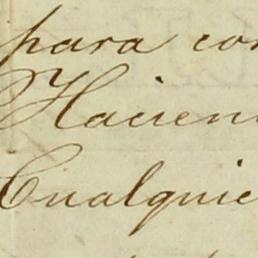 para con
Hacien
Cualquie